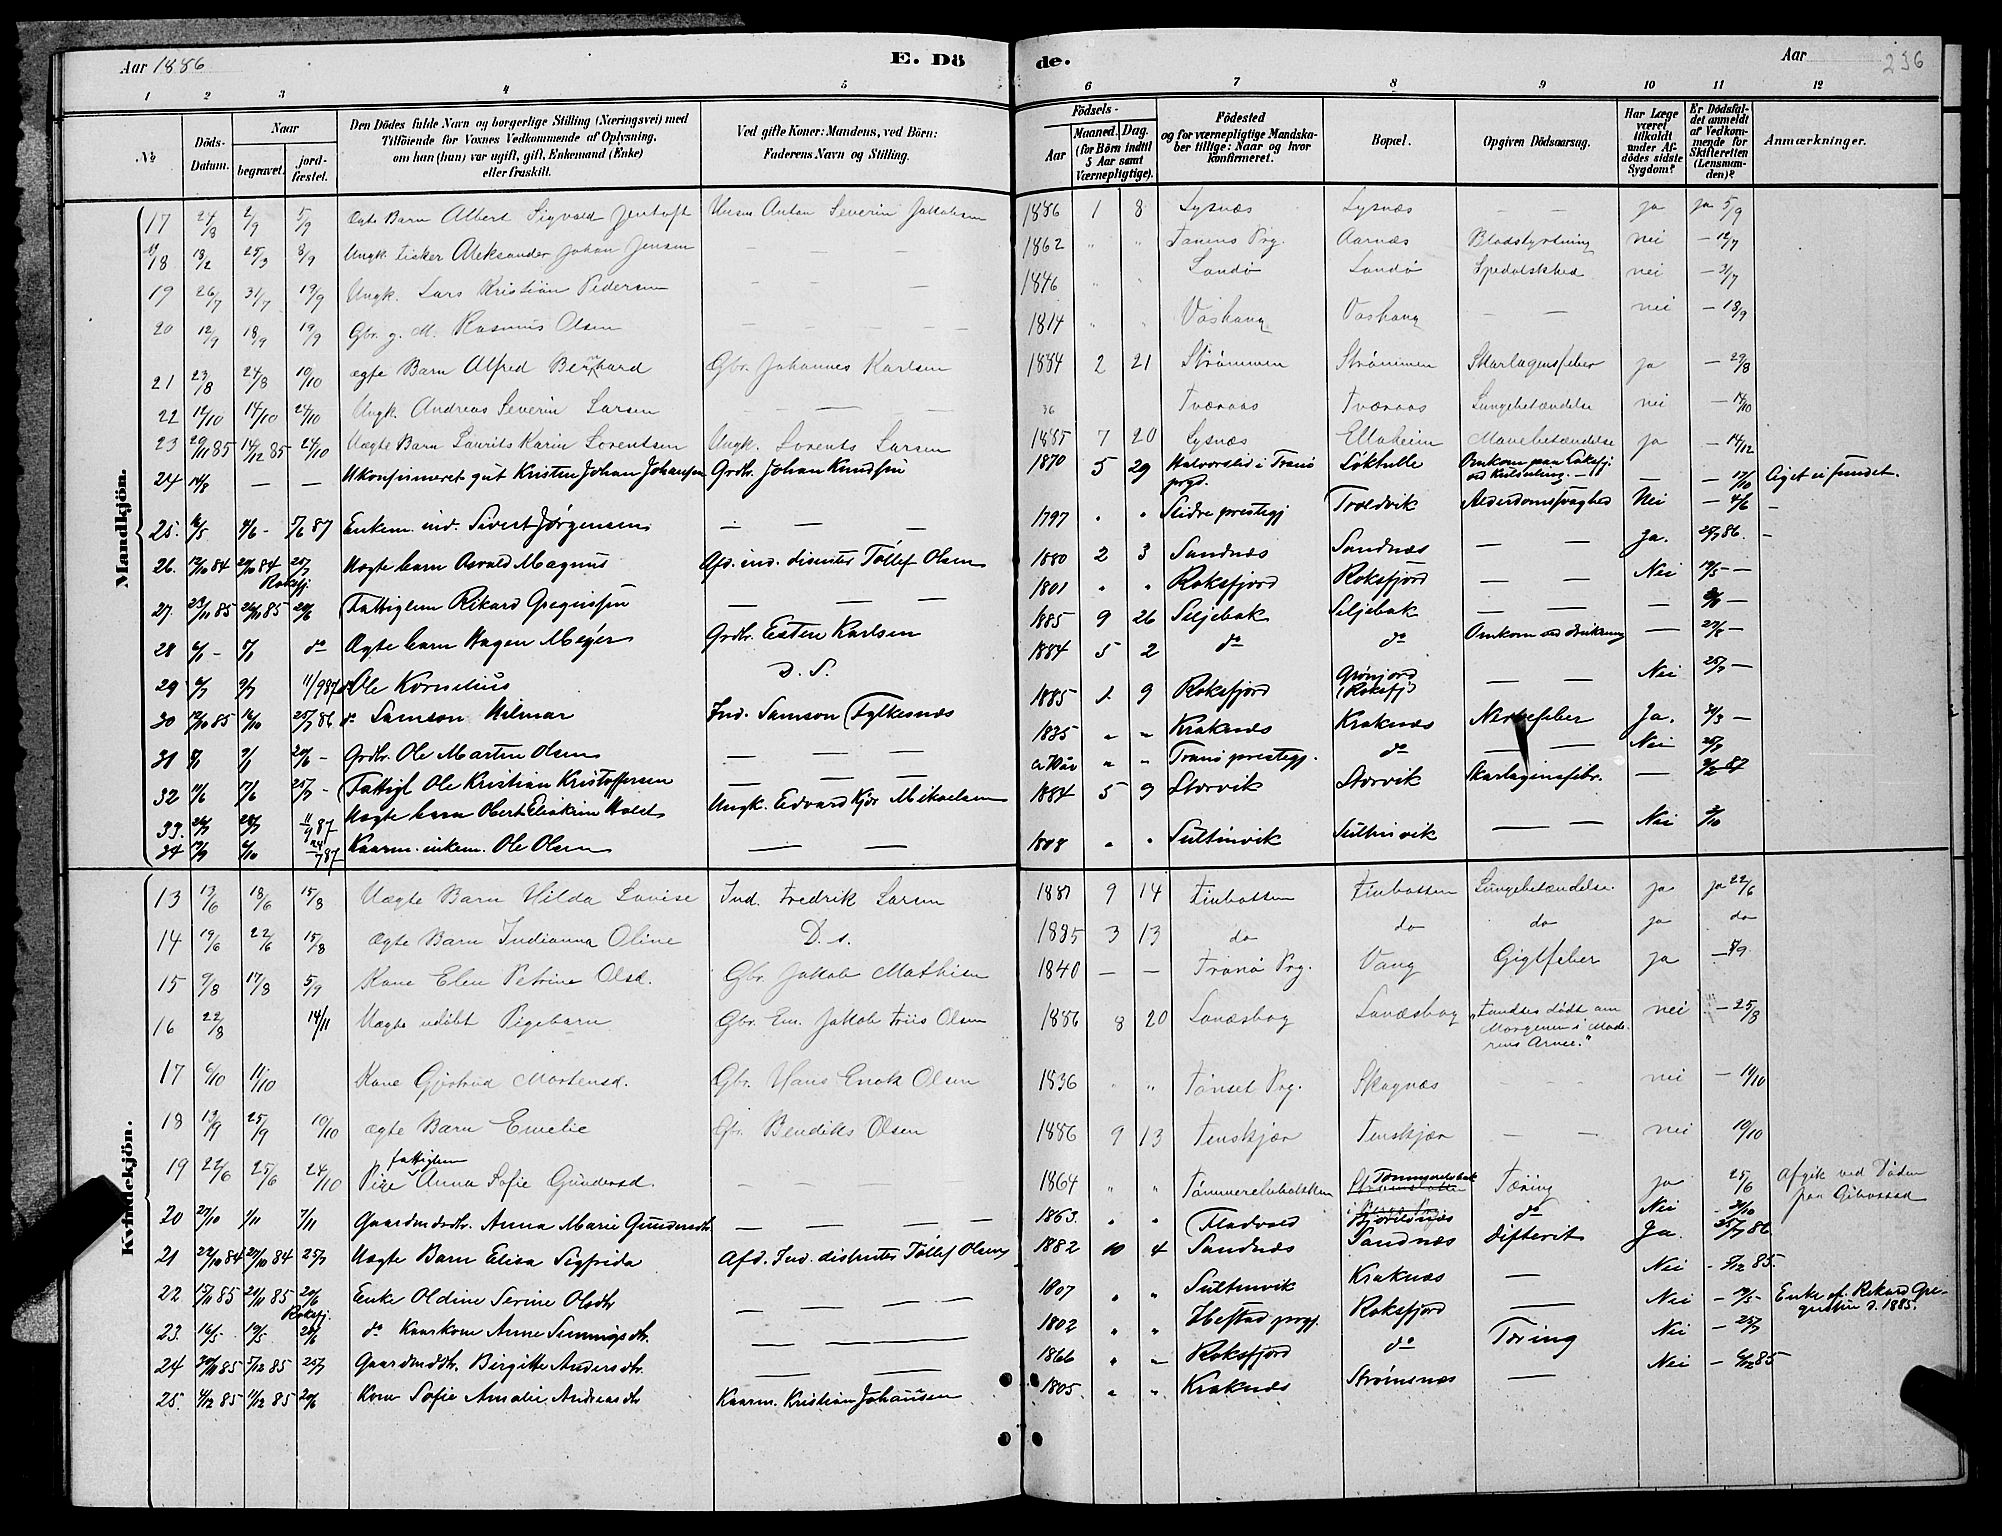 Aar 1886
E. Dö
de.
Aar
236
1 2 3 4 5 6 7 8 9 10 11 12
No
Döds-Datum.
Naar
begravet.
jord-fæstet.
Den Dödes fulde Navn og borgerlige Stilling (Næringsvei) med
Tilföiende for Voxnes Vedkommende af Oplysning,
om han (hun) var ugift, gift, Enkemand (Enke)
eller fraskilt.
Ved gifte Koner: Mandens, ved Börn:
Faderens Navn og Stilling.
Födsels-
Aar
Maaned. Dag.
(for Börn indtil
5 Aar samt
Værnepligtige).
Födested
og for værnepligtige Mandska-
ber tillige: Naar og hvor
konfirmeret.
Bopæl.
Opgiven Dödsaarsag.
Har Læge
været
tilkaldt
under Af-
dödes sidste
Sygdom?
Er Dödsfal-
det anmeldt
af Vedkom-
mende for
Skifteretten
(Lensman-
den)?
Anmærkninger.
Mandkjön.
17 24/8 2/9 5/9 Ægte Barn Albert Sigvald Jentoft Anton Severin Jakobsen 1886 1 8 Lysnæs Lysnæs — — ja ja 5/9
18 18/2 25/3 8/9 Ungk. Fisker Aleksander Johan Jensen — — 1862 " " Tranens Prg. Aarnæs Blodstyrtning nei — 12/7
19 26/7 31/7 19/9 Ungk. Lars Kristian Pedersen — — — 1846 " " Sandø Sandø Spedalskhed nei — 3/7
20 12/9 18/9 19/9 Gbr. g. M. Rasmus Olsen — — — 1814 " " Vashaug Vashaug — — nei — 18/9
21 23/8 24/8 10/10 ægte Barn Alfred Bernhard Gbr. Johannes Karlsen 1884 2 21 Strømmen Strømmen Skarlagensfeber ja — 29/8
22 12/10 14/10 24/10 Ungk. Andreas Severin Larsen — — — 36 Tværaas Tværaas Lungebetændelse nei — 14/10
23 29/11 85 14/12 85 24/10 Uægte Barn Laurits Karin Lorentsen Ungk. Lorents Larsen 1885 7 20 Lysnæs Elloheim Mavebetændelse ja — 14/12
24 14/8 — — Ukonfirmeret gut Kristen Johan Johansen Grdbr. Johan Knudsen 1870 5 29 i Tranø prgd. Løkhelle Omkom paa — — 17/10 Liget ei fundet.
25. 16/5 4/6 - 7/6 87 Enkem. ind. Sivert Jørgensen — — — 1797 " " Slidre prestegj Troldvik Alderdomssvaghed Nei — 4/6 —
26. 12/10 84 20/10 84 25/7 Uægte barn Osvald Magnus Afd. ind. disenter Tollef Olsen 1880 2 3 Sandnæs Sandnæs — — Ja. 25/7 86. —
Roksfj.
27. 23/11 85 26/11 85 20/6 Fattiglem Rikard Gregersen — — — 1801 " " Roksfjord Roksfjord — — Nei 19/5 —
28 6/1 - 7/1 do Ægte barn Hagen Meyer Grdbr. Esten Karlsen 1885 9 26 Seljebak Seljebak — — — 8/1 —
29 6/7 9/7 11/9 87 do Ole Kornelius D. S. 1884 5 2 do do Omkom ved drukning — 27/8 —
30 12/10 85 16/10 25/7 86 do Samson Hilmar Ind. Samson Fylkesnæs 1885 1. 9 Roksfjord Grønjord (Roksfj) — — Nei 25/7 —
31 8/1 9/1 20/6 - Grdbr. Ole Marten Olsen — — — 1835 " " Kraknæs Kraknæs Nervefeber Ja. 2/3 —
32 11/6 17/6 25/7 - Fattigl. Ole Kristian Kristoffersen — — — " " Tranø prestegj. do — — Nei 25/7
33. 26/7 28/7 11/9 87 Uægte barn Obert Eliakim Holst Ungk. Edvard Kjær Mikaelsen 1884 5 9 Storvik Storvik Skarlagensfebr. — 2/2 87
34 19/9 6/10 24/7 87 Kaarm. enkem. Ole Olsen — — 1808 " " Sultinvik Sultinvik — — Nei 2/10
Kvindekjön.
13 13/6 18/6 15/8 Uægte Barn Hilda Lovise Ind. Fredrik Larsen 1881 9 14 Finbotten Finbotten Lungebetændelse. ja ja 22/6
14 19/6 22/6 15/8 ægte Barn Indianna Oline D. s. 1885 3 13 do do do ja do
15 9/8 17/8 5/9 Kone Elen Petrine Olsd. Gbr. Jakob Mathisen 1840 — — Tranø Prg. Vang Gigtfeber ja — 7/9
16 22/8 14/11 Uægte udøbt Pigebarn Gbr. Em. Jakob Friis Olsen 1886 8 20 Lanæsbog Lanæsbog "Fandtes dødt om Morgenen i Moderens Arme." nei — 25/8
17 6/10 11/10 Kone Gjertrud Mortensd. Gbr. Hans Enok Olsen 1836 " " Tønset Prg. Skognæs — — nei — 11/10
18 19/9 25/9 10/10 ægte Barn Emelie Gbr. Bendiks Olsen 1886 9 13 Tenskjær Tenskjær — — nei 10/10
19 22/6 25/6 24/10 Pige fattiglem Anna Sofie Gundersd. — — — 1864 " " Tømmerelvbakken Tæring ja 25/6 Afgik ved Døden paa Gibostad
20 27/10 1/11 7/11 Gaardmdsdtr. Anna Marie Gundersdtr. — — — 1863. " " Fladvold Bjorelvnæs do Nei - 30/10
21 22/10 84 27/10 84 25/7 Uægte Barn Elisa Sigfrida Afd. Ind. disenter Tollef Olsen 1882 10 4 Sandnæs Sandnæs difterit Ja. - 25/7 86
22 15/11 85 21/11 85 20/6 Enke Oldine Serine Olsdtr — — — 1807 " " Sultinvik Kraknæs — Nei - 5/12 85.
Roksfj.
23. 16/5 19/5 20/6 do Kaarkone Anne Simmingsdtr. — — 1802 " " Hestad prgj. Roksfjord — Nei - 19/5 - Enke af Rikard Gregersen d. 1885.
24 30/11 85 5/12 85 25/7 Gaardmdsdtr. Birgitte Andersdtr. — — 1866 " — Roksfjord do Tæring Nei - 25/7
25. 4/12 85 11/12 85 20/6 Kone Sofie Amalie Andreasdtr Kaarm. Kristian Johansen 1805. " " Kraknæs Strømsnæs — Nei — 6/12 85